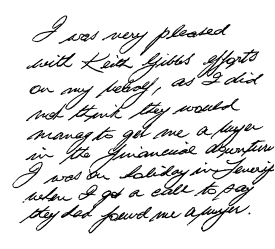 I was very pleased
with Keith Gibbs efforts
on my behalf, as I did
not think they would
manag to get me a buyer
in the financial downturn
I was on holiday in Tenerife
when I got a call to say
they had found me a buyer.